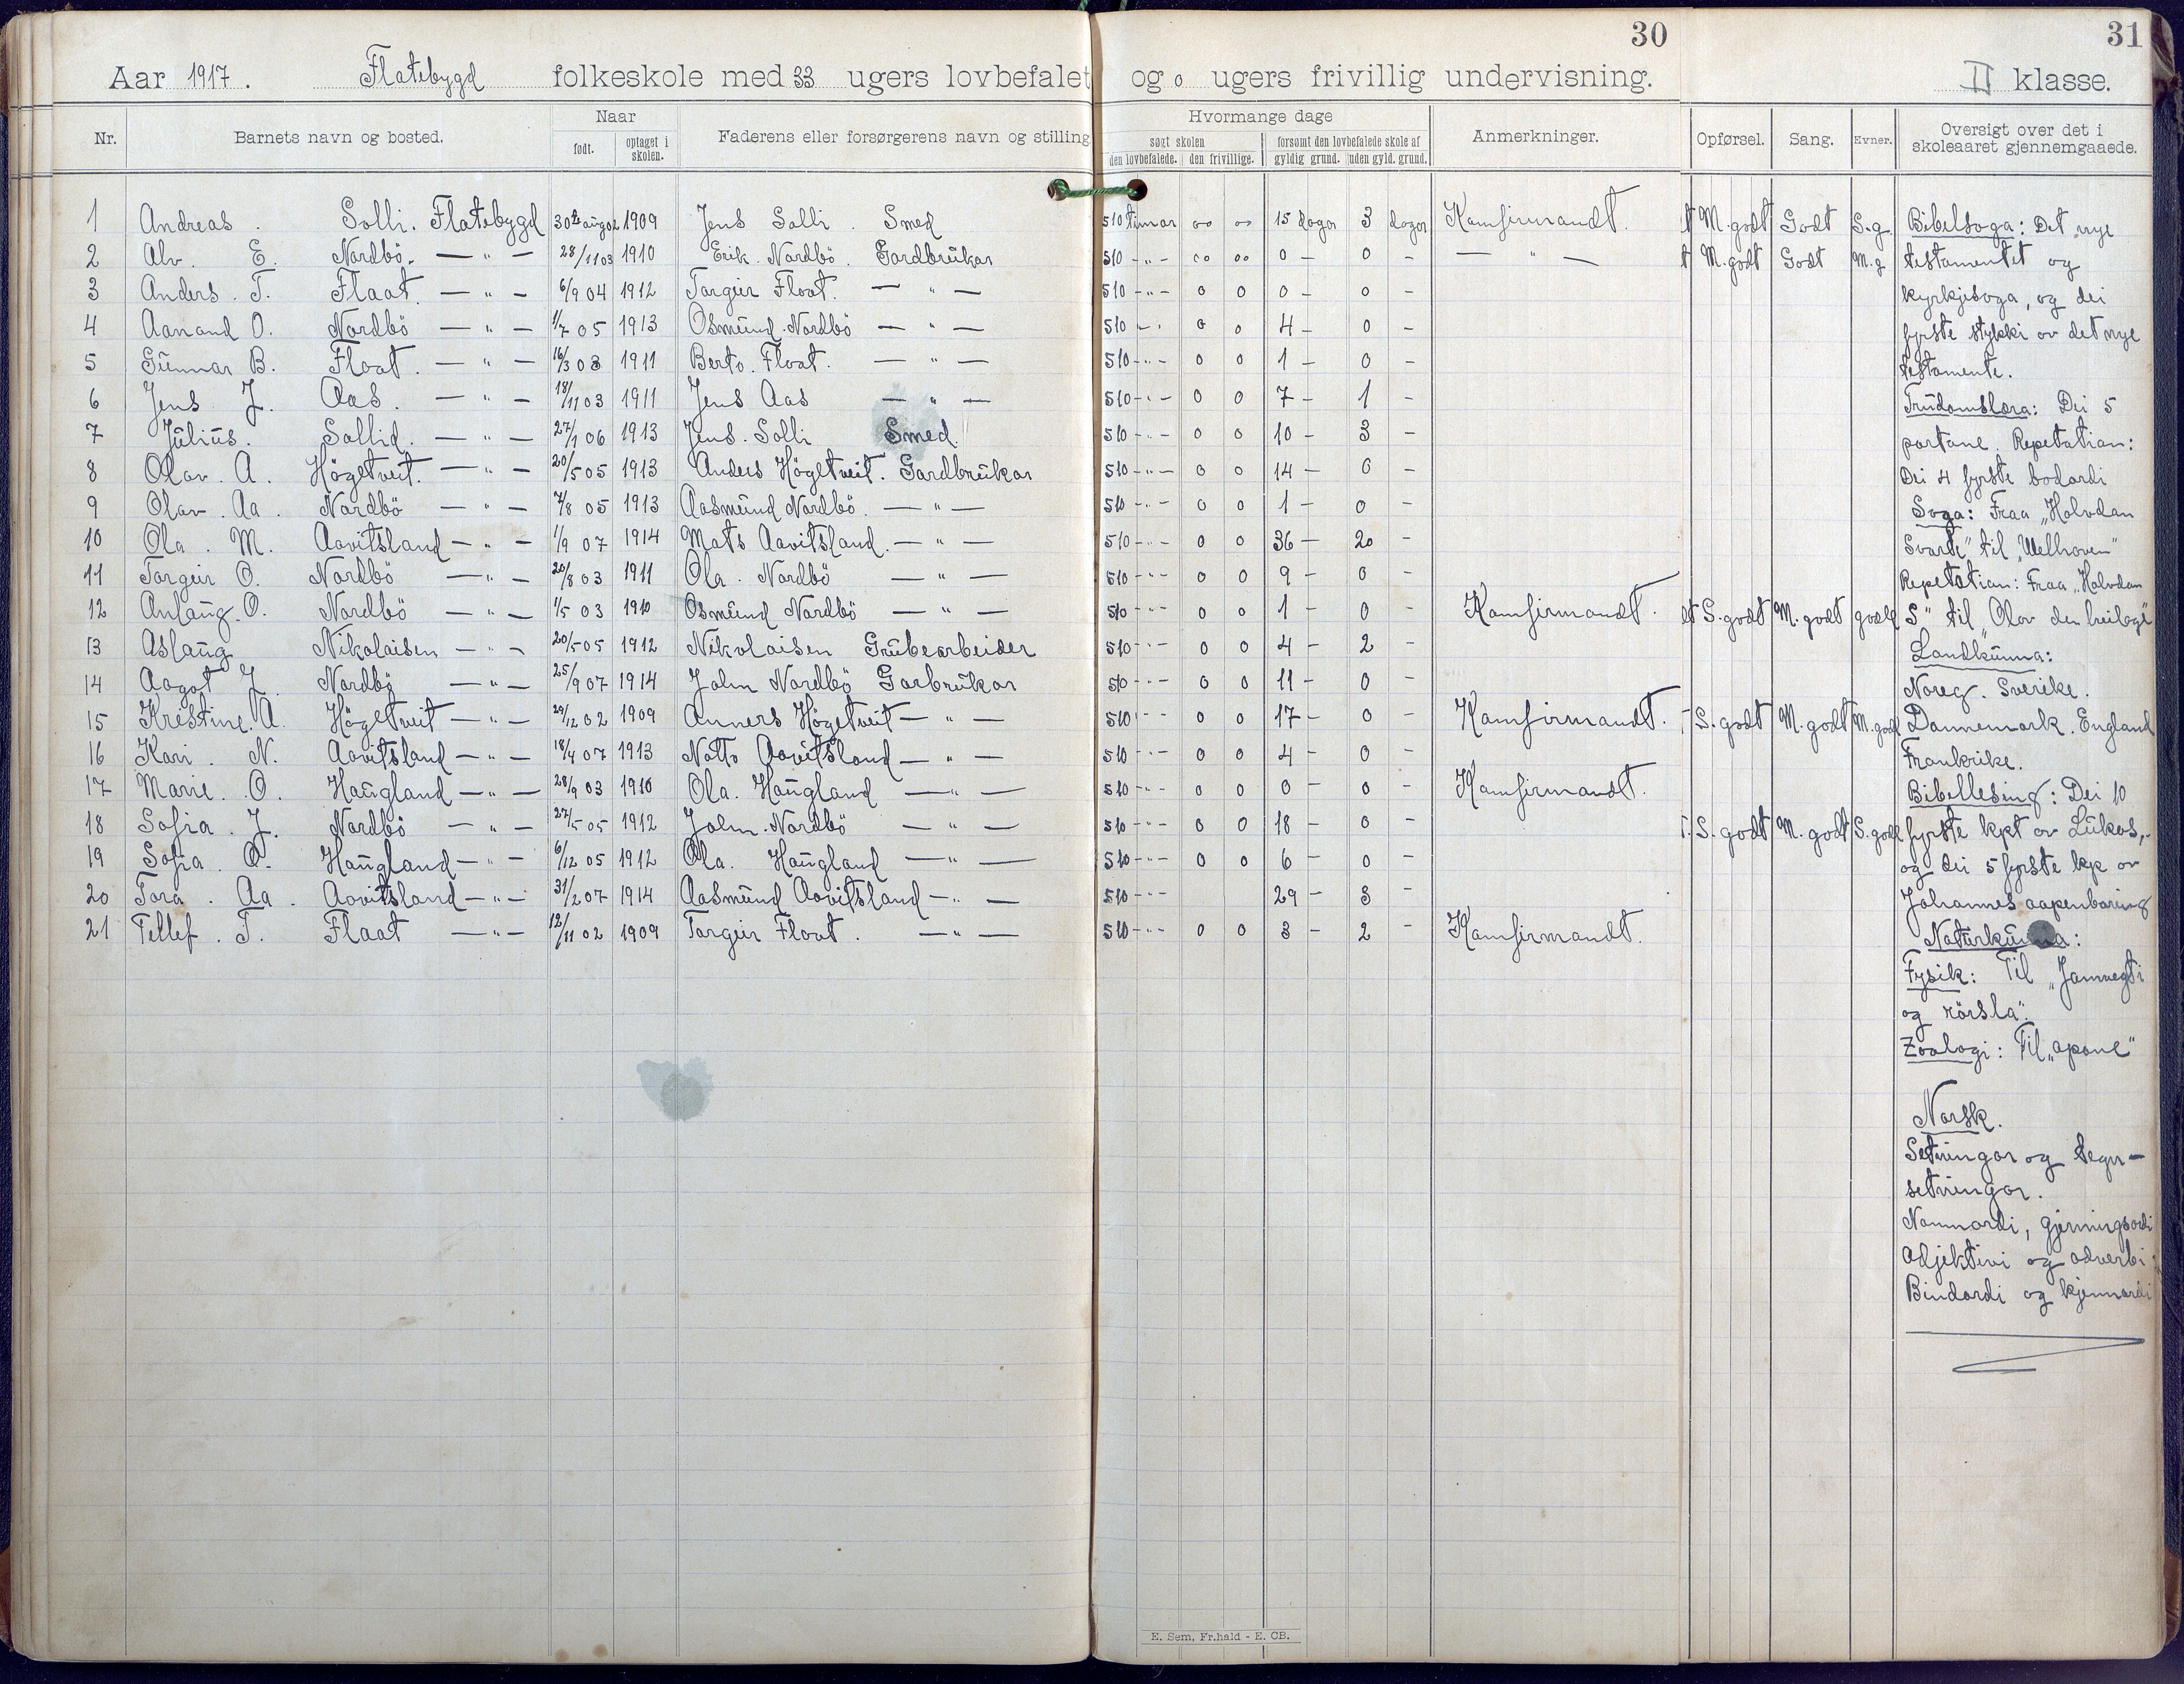 30
31
Aar 1917. Flatebygd folkeskole med 33 ugers lovbefalet og 0 ugers frivillig undervisning. II klasse.
Nr. Barnets navn og bosted. Naar født. optaget i skolen. Faderens eller forsørgerens navn og stilling Hvormange dage søgt skolen den lovbefalede. den frivillige. forsømt den lovbefalede skole af gyldig grund. uden gyld. grund. Anmerkninger. Opførsel. Sang. Evner. Oversigt over det i skoleaaret gjennemgaaede.
1 Andreas . Solli. Flatebygd 30te august 1909 Jens Solli . Smed 510 timar 00 00 15 dagar 3 dagar Kamfirmandt. M. godt Godt S.g.
2 Alv. E. Nordbö. — " — 28/11 03 1910 Erik. Nordbö. Gardbrükar 510 - " - 00 00 0 — 0 — — " — M. godt Godt M. g
3 Anders. T. Flaat. — " — 6/9 04 1912 Targeir Flaat. — " — 510 - " - 0 0 0 — 0 —
4 Aanand O. Nordbö — " — 1/7 05 1913 Osmünd. Nordbö — " — 510 - " - 0 0 4 — 0 —
5 Günnar B. Flaat. — " — 16/3 03 1911 Berto. Flaat. — " — 510 - " - 0 0 1 — 0 —
6 Jens J. Aas. — " — 18/11 03 1911 Jens Aas — " — 510 - " - 0 0 7 — 1 —
7 Jülius. Sollid. — " — 27/1 06 1913 Jens. Solli Smed. 510 - " - 0 0 10 — 3 —
8 Olav. A. Högetveit. — " — 20/5 05 1913 Anders Högetveit. Gardbrükar 510 - " - 0 0 14 — 0 —
9 Olav. Aa. Nordbö — " — 7/8 05 1913 Aasmünd Nordbö. — " — 510 - " - 0 0 1 — 0 —
10 Ola. M. Aavitsland — " — 1/9 07 1914 Mats Aavitsland. — " — 510 - " - 0 0 36 — 20 —
11 Targeir O. Nordbö — " — 20/8 03 1911 Ola. Nordbö — " — 510 - " - 0 0 9 — 0 —
12 Anlaug. O. Nordbö — " — 1/5 03 1910 Osmünd Nordbö — " — 510 - " - 0 0 1 — 0 — Kamfirmandt. S. godt M. godt godt
13 Aslaüg Nikolaisen — " — 20/5 05 1912 Nikolaisen Grübearbeider 510 - " - 0 0 4 — 2 —
14 Aagot J. Nordbö — " — 25/9 07 1914 Jahn Nordbö Garbrükar 510 - " - 0 0 11 — 0 —
15 Krestine. A. Högetveit — " — 29/12 02 1909 Anners Högetveit — " — 510 - " - 0 0 17 — 0 — Kamfirmandt. S. godt M. godt M. godt
16 Kari. N. Aavitsland — " — 18/4 07 1913 Natto Aavitsland — " — 510 - " - 0 0 4 — 0 —
17 Marie. O. Haügland — " — 28/9 03 1910 Ola. Haügland — " — 510 - " - 0 0 0 — 0 — Kamfirmandt.
18 Sofia. J. Nordbö — " — 27/5 05 1912 Jahn. Nordbö — " — 510 - " - 0 0 18 — 0 — S. godt M. godt S. godt
19 Sofia. O. Haügland — " — 6/12 05 1912 Ola. Haügland — " — 510 - " - 0 0 6 — 0 —
20 Tora. Aa. Aavitsland — " — 31/2 07 1914 Aasmünd Aavitsland — " — 510 - " - 29 — 3 —
21 Tellef. T. Flaat — " — 12/11 02 1909 Targeir Flaat. — " — 510 - " - 0 0 3 — 2 — Kamfirmandt.
Bibelsoga: Det nye
testamentet og
kyrkjesoga, og dei
fyrste stykki av det nye
testamente.
Trüdomslæra: Dei 5
partane. Repetation:
Dei 4 fyrste bodordi
Soga: Fraa „Halvdan
Svarte" til „Welhaven"
Repetation: Fraa „Halvdan
S" til „Olav den heilage"
Landkünna:
Noreg. Sverike.
Dannemark. England
Frankrike.
Bibellesing: Dei 10
fyrste kpt av Lükas,
og dei 5 fyrste kp av
Johannes aapenbaring
Natürkünna:
Fysik: Til „Jamvegti
og rörsla".
Zoologi: Til „apane"
Norsk.
Setningar og tegn-
setningar.
Namnordi, gjerningsordi
Adjektivi og adverbi
Bindordi og kjennordi
E. Sem, Fr.hald - E. CB.